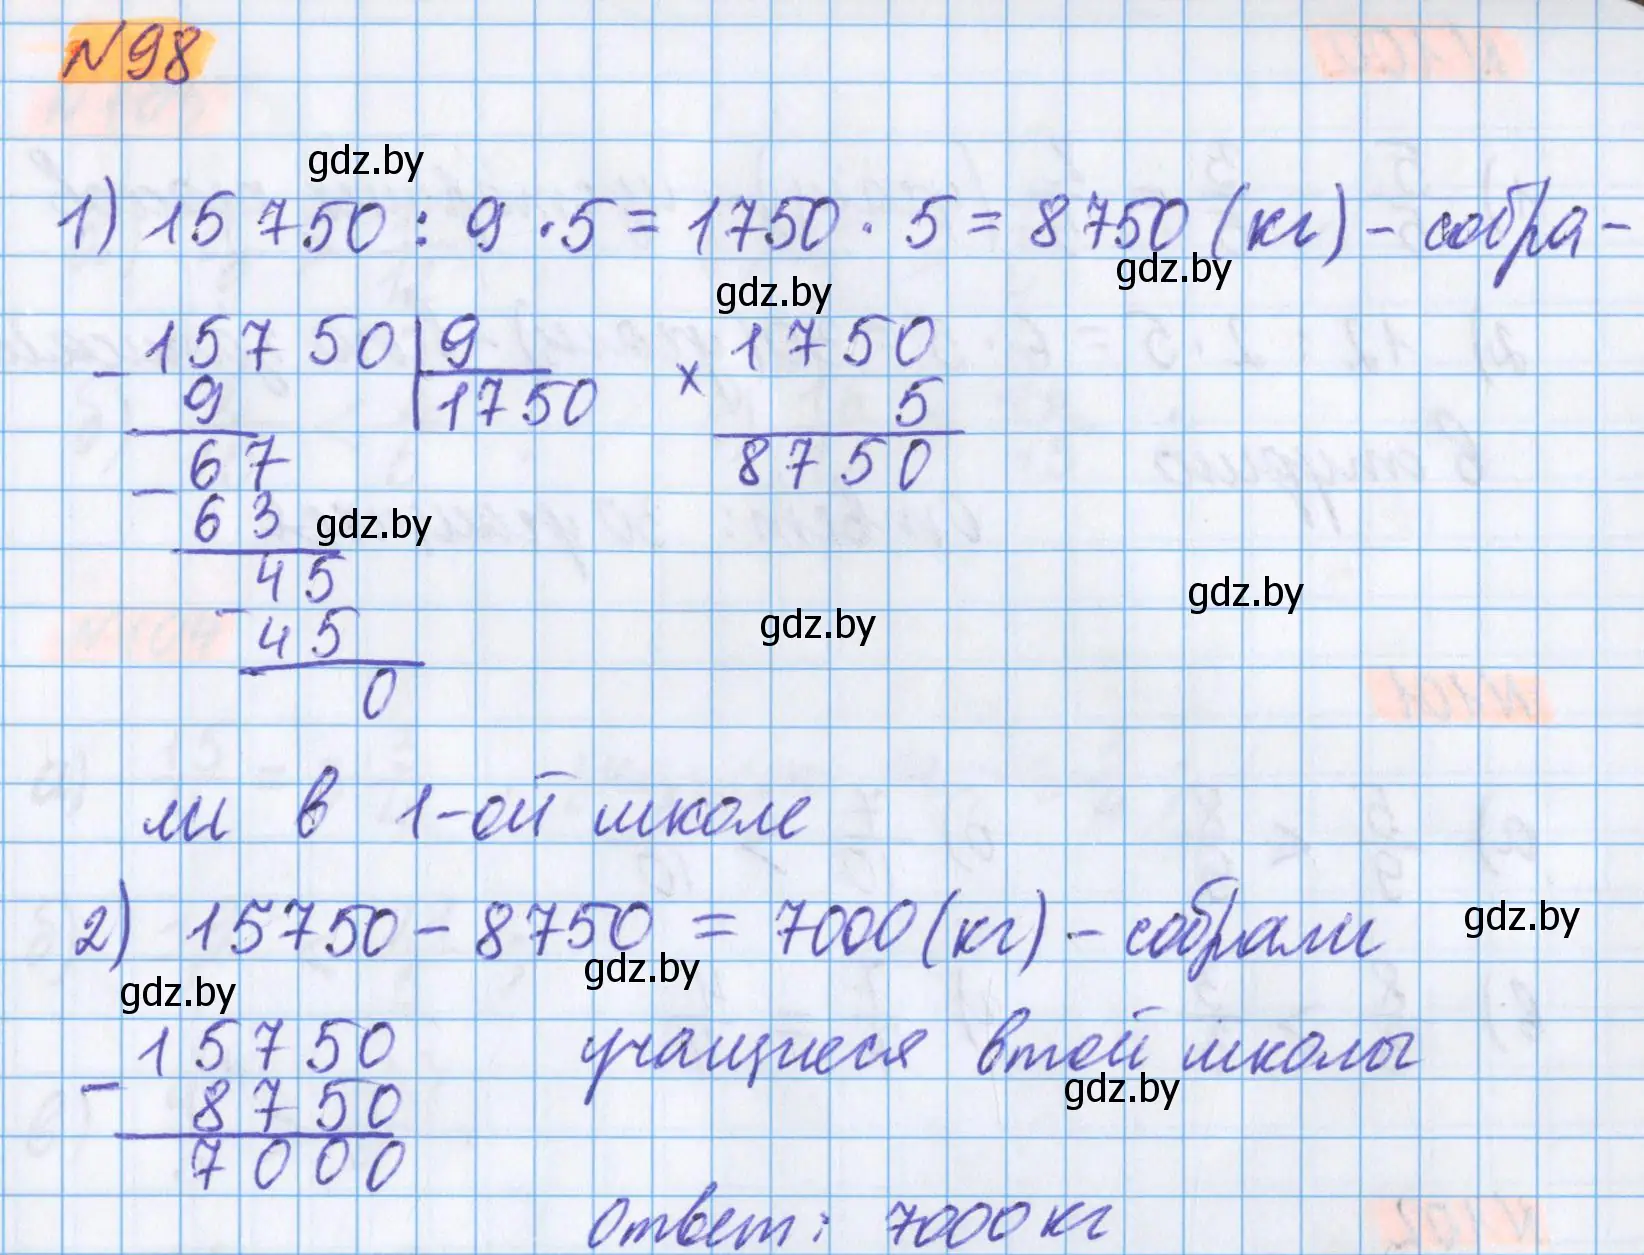 N98
gdz.by
1) 15 750 : 9 · 5 = 1750 · 5 = 8750 (кг) - собра-
gdz.by gdz.by
- 15750 | 9
9 | 1750
- 67
63
- 45
45
0
× 1750
5
8750
gdz.by
gdz.by
gdz.by
ли в 1-ой школе
2) 15750 - 8750 = 7000 (кг) - собрали
gdz.by
gdz.by
gdz.by
- 15750
8750
7000
учащиеся втой школы
gdz.by
Ответ: 7000 кг